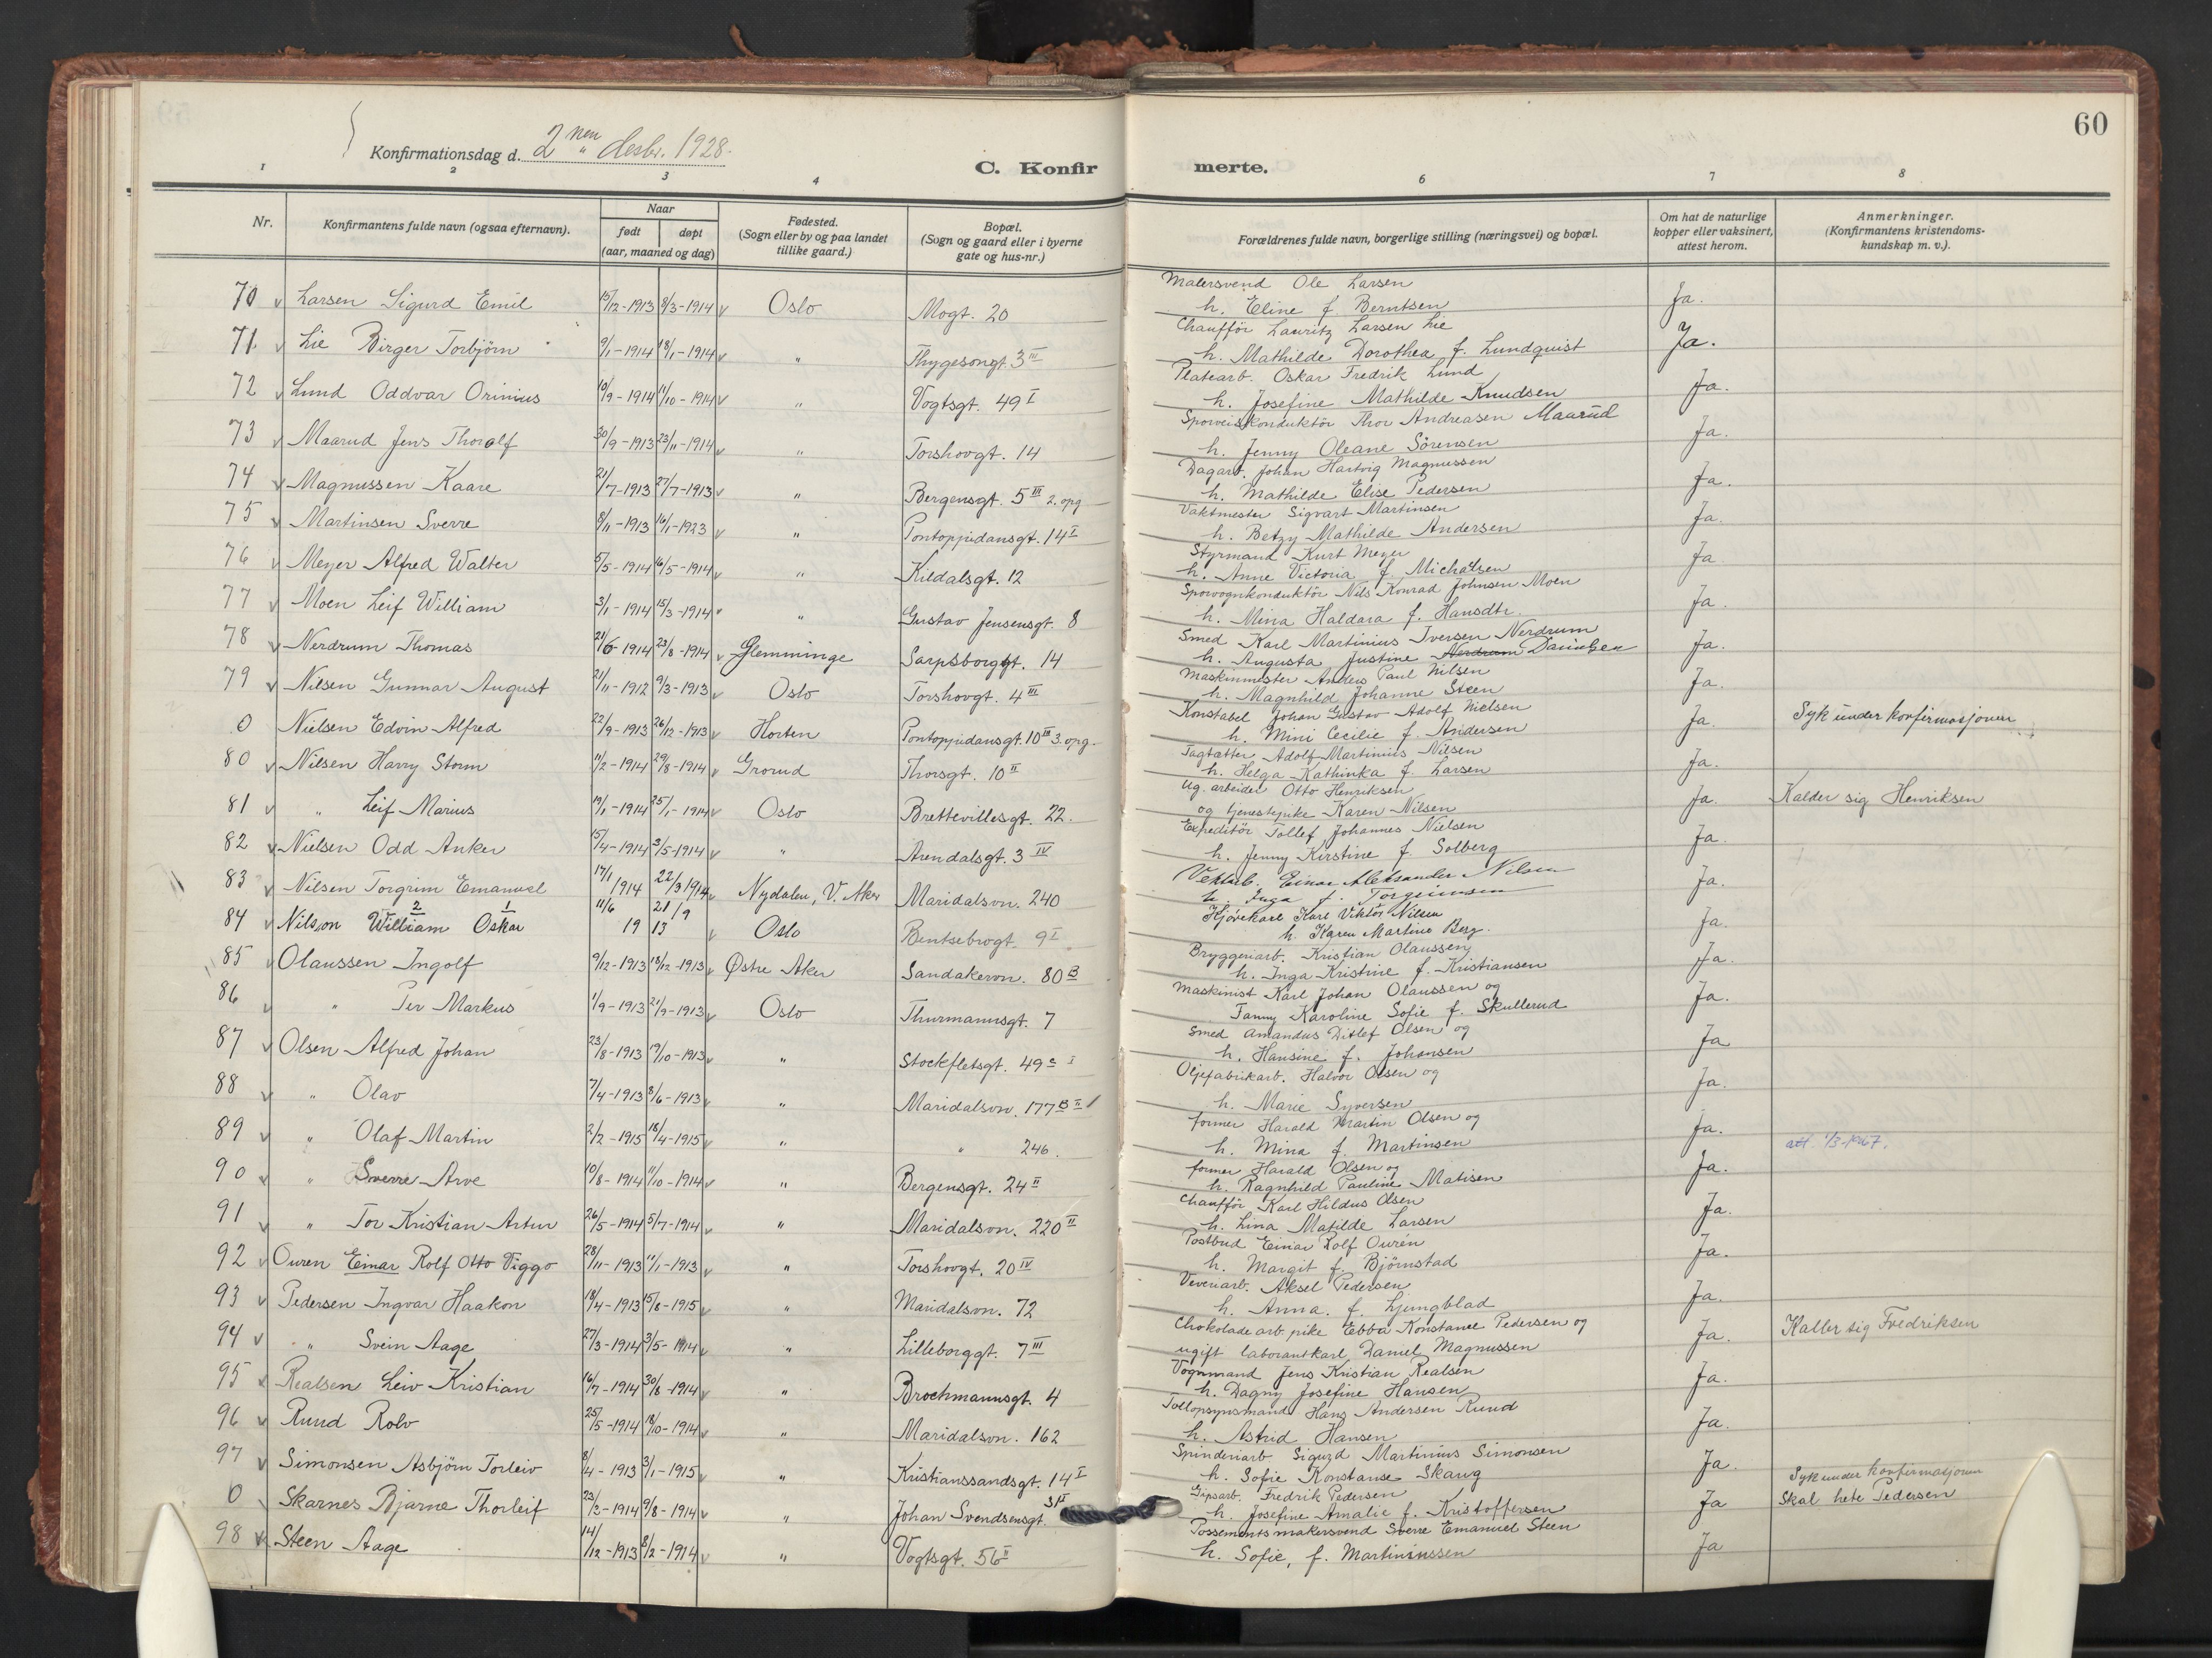 60
Konfirmationsdag d. 2nen desbr. 1928.
C. Konfirmerte.
1 2 3 4 6 7 8
Nr.
Konfirmantens fulde navn (ogsaa efternavn).
Naar
født døpt
(aar, maaned og dag)
Fødested.
(Sogn eller by og paa landet
tillike gaard.)
Bopæl.
(Sogn og gaard eller i byerne
gate og hus-nr.)
Forældrenes fulde navn, borgerlige stilling (næringsvei) og bopæl.
Om hat de naturlige
kopper eller vaksinert,
attest herom.
Anmerkninger.
(Konfirmantens kristendoms-
kundskap m. v.).
70 Larsen Sigurd Emil 15/12-1913 8/3-1914 Oslo Mogt. 20 Malersvend Ole Larsen
h. Eline f. Berntsen Ja.
71 Lie Birger Torbjörn 9/1-1914 18/1-1914 " Thygesongt. 3 III Chaufför Lauritz Larsen Lie
h. Mathilde Dorothea f. Lundquist Ja.
72 Lund Oddvar Orinius 10/9-1914 11/10-1914 " Vogtsgt. 49 I Platearb. Oskar Fredrik Lund
h. Josefine Mathilde Knudsen Ja.
73 Maarud Jens Thoralf 30/9-1913 23/11-1914 " Torshovgt. 14 Sporveiskonduktör Thor Andreasen Maarud
h. Jenny Oleane Sörensen Ja.
74 Magnussen Kaare 21/7-1913 27/7-1913 " Bergensgt. 5 III 2. opg Dagarb. Johan Hartvig Magnussen
h. Mathilde Elise Pedersen Ja.
75 Martinsen Sverre 8/11-1913 16/1-1923 " Pontoppidansgt. 14 I Vaktmester Sigvart Martinsen
h. Betzy Mathilde Andersen Ja.
76 Meyer Alfred Walter 5/5-1914 16/5-1914 " Kildalsgt. 12 Styrmand Kurt Meyer
h. Anne Victoria f. Michalsen Ja
77 Moen Leif William 3/1-1914 15/3-1914 " Gustav Jensensgt. 8 Sporvognkonduktör Nils Konrad Johnsen Moen
h. Mina Haldara f. Hansdtr. Ja.
78 Nerdrum Thomas 21/6-1914 23/8-1914 Glemminge Sarpsborggt. 14 Smed Karl Martinius Iversen Nerdrum
h. Augusta Justine Nerdrum Ja.
79 Nilsen Gunnar August 21/11-1912 9/3-1913 Oslo Torshovgt. 4 III Maskinmester Anders Paul Nilsen
h. Magnhild Johanne Steen Ja.
0 Nielsen Edvin Alfred 22/9-1913 26/12-1913 Horten Pontoppidansgt. 10 III 3. opg. Konstabel Johan Gustav Adolf Nielsen
h. Mini Cecilie f. Andersen Ja. Syk under konfirmasjonen
80 Nilsen Harry Storm 11/2-1914 29/8-1914 Grorud Thorsgt. 10 II Tagtætter Adolf Martinius Nilsen
h. Helga Kathinka f. Larsen Ja.
81 " Leif Marius 19/1-1914 25/1-1914 Oslo Brettevillesgt. 22. Ug. arbeider Otto Henriksen
og tjenestepike Karen Nilsen Ja. Kalder sig Henriksen
82 Nielsen Odd Anker 15/4-1914 3/5-1914 " Arendalsgt. 3 IV Expeditör Tollef Johannes Nielsen
h. Jenny Kirstine f. Solberg Ja.
83 Nilsen Torgrim Emanuel 17/1 1914 22/3 1914 Nydalen, V. Aker Maridalsvn. 240 Einar Aleksander Nilsen
h. Inga f. Torgrimsen Ja.
84 Nilsson William 2 Oskar 1 11/6 1913 21/9 Oslo Bentsebrogt. 9 I Kjørekarl Karl Viktor Nilsen
h. Karen Martine Berg. Ja.
85 Olaussen Ingolf 9/12-1913 18/12-1913 Østre Aker Sandakervn. 80 B Bryggeriarb. Kristian Olaussen
h. Inga Kristine f. Kristiansen Ja.
86 " Per Markus 1/9-1913 21/9-1913 Oslo Thurmannsgt. 7 Maskinist Karl Johan Olaussen og
Fanny Karoline Sofie f. Skullerud Ja.
87 Olsen Alfred Johan 23/8-1913 19/10-1913 " Stockfletsgt. 49 c I Smed Amandus Ditlef Olsen og
h. Hansine f. Johansen Ja
88 " Olav 7/4-1913 8/6-1913 " Maridalsvn. 177 B II Oljefabrikarb. Halvor Olsen og
h. Marie Syversen Ja.
89 " Olaf Martin 2/2-1915 18/4-1915 " " 246. former Harald Martin Olsen og
h. Mina f. Martinsen Ja. att. 1/3-1967.
90 " Sverre Arve 10/8-1914 11/10-1914 " Bergensgt. 24 II former Harald Olsen og
h. Ragnhild Pauline Matisen Ja.
91 " Tor Kristian Artur 26/5-1914 5/7-1914 " Maridalsvn. 220 II Chaufför Karl Hildus Olsen
h. Lina Matilde Larsen Ja.
92 Ouren Einar Rolf Otto Viggo 28/11-1913 11/1-1913 " Torshovgt. 20 IV Postbud Einar Rolf Ourén
h. Margit f. Björnstad Ja.
93 Pedersen Ingvar Haakon 18/4-1913 15/8-1915 " Maridalsvn. 72 Veveriarb. Aksel Pedersen
h. Anna. f. Ljungblad Ja.
94 " Svein Aage 27/3-1914 3/5-1914 " Lilleborggt. 7 III Chokoladearb. pike Ebba Konstance Pedersen og
ugift laborantkarl Daniel Magnussen Ja. Kaller sig Fredriksen
95 Realsen Leiv Kristian 16/7-1914 30/8-1914 " Brochmannsgt. 4 Vognmand Jens Kristian Realsen
h. Dagny Josefine Hansen Ja.
96 Ruud Rolv 25/5-1914 18/10-1914 " Maridalsvn. 162 Tollopsynsmand Hans Andersen Ruud
h. Astrid Hansen Ja.
97 Simonsen Asbjörn Torleiv 8/4-1913 3/1-1915 " Kristianssandsgt. 14 I Spinderiarb Sigurd Martinius Simonsen
h. Sofie Konstanse Skaug Ja.
0 Skarnes Bjarne Thorleif 23/2-1914 9/8-1914 " Johan Svendsensgt. Gipsarb. Fredrik Pedersen
h. Josefine Amalie f. Kristoffersen Ja Syk under konfirmasjonen
Skal hete Pedersen
98 Steen Aage 14/12-1913 8/2-1914 " Vogtsgt. 56 II Possementsmakersvend Sverre Emanuel Steen
h. Sofie, f. Martiniussen Ja